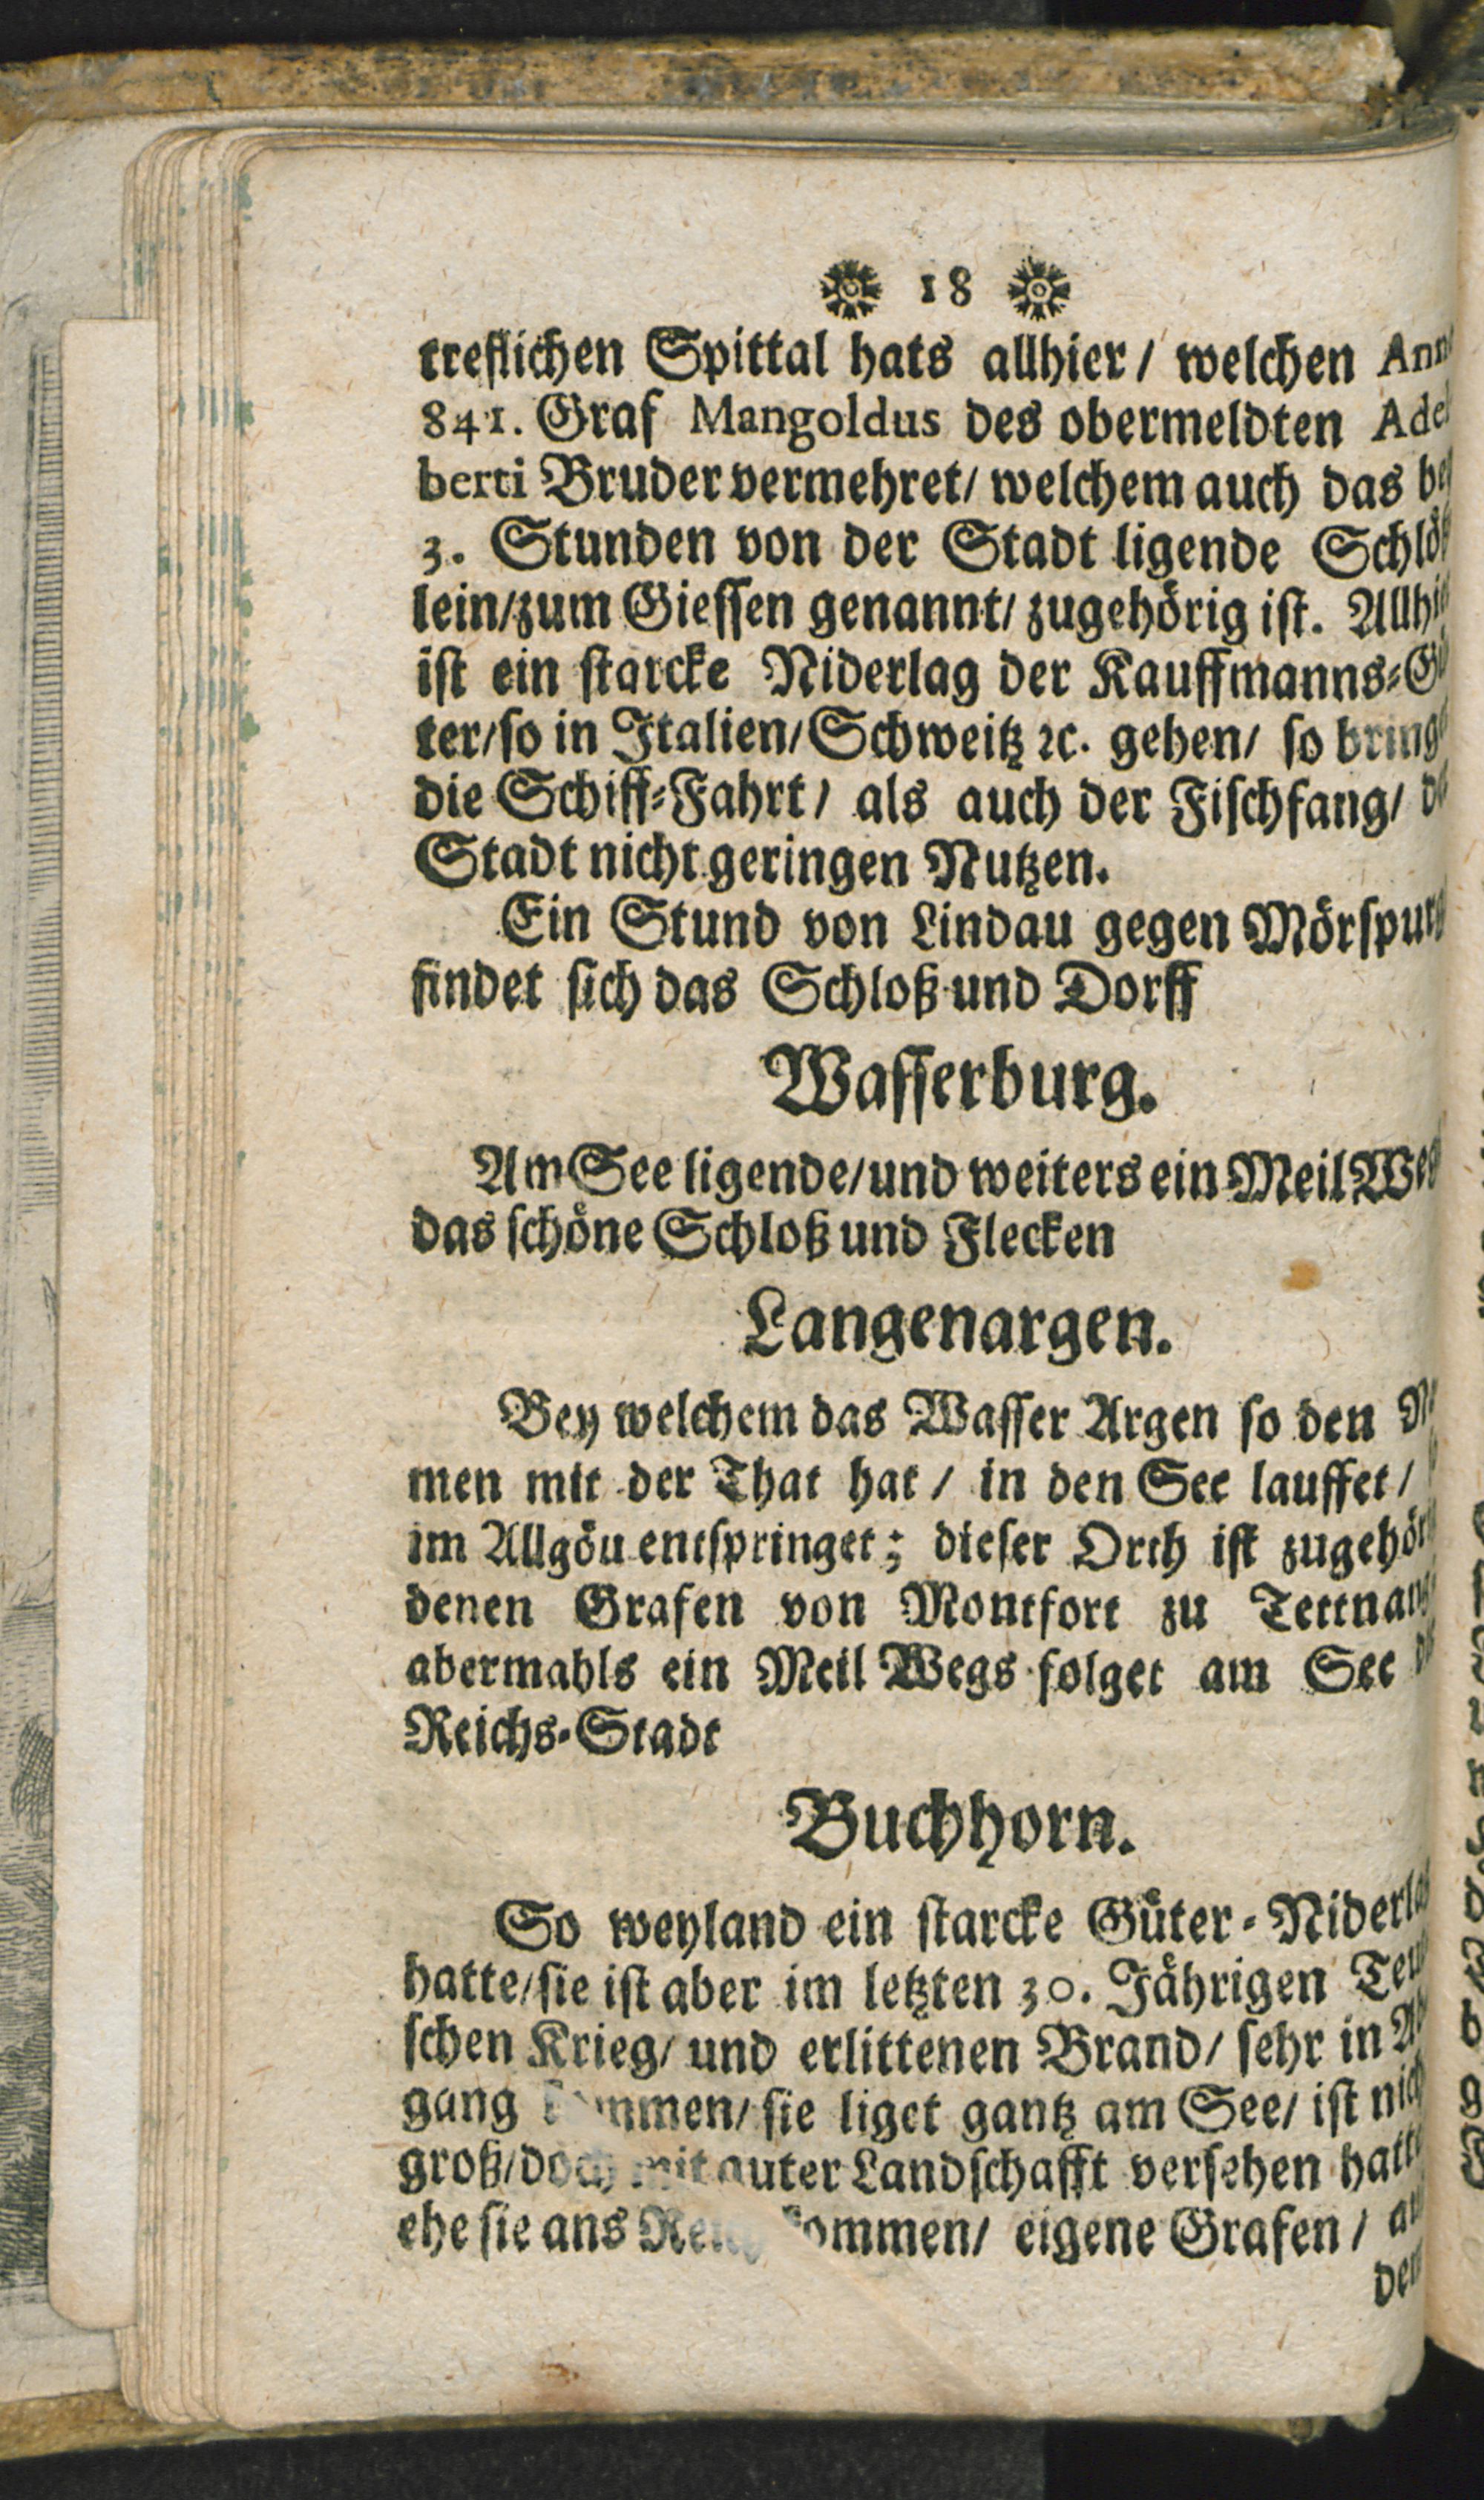 18
treflichen Spittal hats allhier / welchen
841. Graf Mangoldus des obermeldten
berti Bruder vermehret / welchem auch das
3. Stunden von der Stadt ligende
lein / zum Giessen genannt / zugehörig ist.
ist ein starcke Niderlag der Kauffmanns-
ter / so in Italien / Schweitz ꝛc. gehen / so
die Schiff-Fahrt / als auch der Fischfang /
Stadt nicht geringen Nutzen.
Ein Stund von Lindau gegen
findet sich das Schloß und Dorff
Wasserburg.
Am See ligende / und weiters ein Meil
das schöne Schloß und Flecken
Langenargen.
Bey welchem das Wasser Argen so den
men mit der That hat / in den See lauffet /
im Allgöu entspringet; dieser Orth ist
denen Grafen von Montfort zu
abermahls ein Meil Wegs folget am See
Reichs-Stadt
Buchhorn.
So weyland ein starcke Güter-
hatte / sie ist aber im letzten 30. Jährigen
schen Krieg / und erlittenen Brand / sehr in
gang / sie liget gantz am See / ist
groß / doch mit guter Landschafft versehen
ehe sie ans / eigene Grafen /